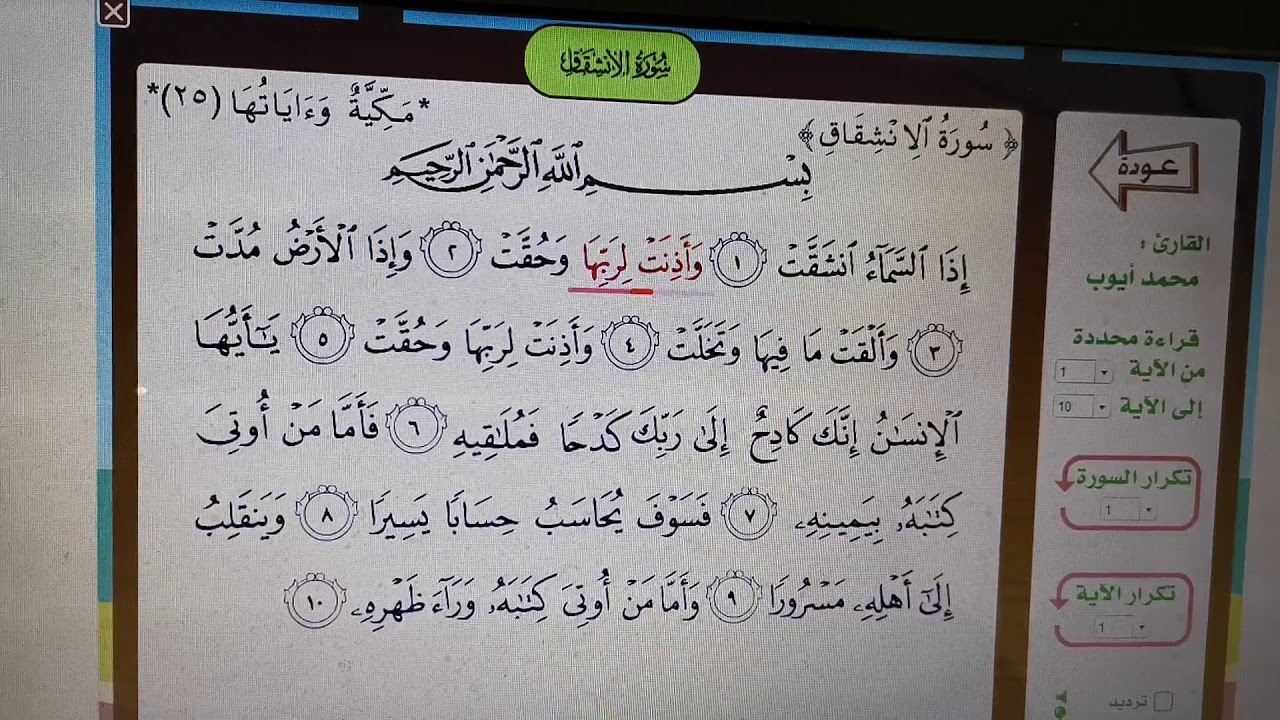 سُورَةُ الِانشِقَاقِ
﴿ سُورَةُ ٱلِانْشِقَاقِ ﴾
*مَكِّيَّةٌ وَءَايَاتُهَا (٢٥)*
بِسْمِ ٱللَّهِ ٱلرَّحْمَٰنِ ٱلرَّحِيمِ
إِذَا ٱلسَّمَآءُ ٱنشَقَّتْ ١ وَأَذِنَتْ لِرَبِّهَا وَحُقَّتْ ٢ وَإِذَا ٱلْأَرْضُ مُدَّتْ
٣ وَأَلْقَتْ مَا فِيهَا وَتَخَلَّتْ ٤ وَأَذِنَتْ لِرَبِّهَا وَحُقَّتْ ٥ يَٰٓأَيُّهَا
ٱلْإِنسَٰنُ إِنَّكَ كَادِحٌ إِلَىٰ رَبِّكَ كَدْحًا فَمُلَٰقِيهِ ٦ فَأَمَّا مَنْ أُوتِىَ
كِتَٰبَهُۥ بِيَمِينِهِۦ ٧ فَسَوْفَ يُحَاسَبُ حِسَابًا يَسِيرًا ٨ وَيَنقَلِبُ
إِلَىٰٓ أَهْلِهِۦ مَسْرُورًا ٩ وَأَمَّا مَنْ أُوتِىَ كِتَٰبَهُۥ وَرَآءَ ظَهْرِهِۦ ١٠
عودة
القارئ :
محمد أيوب
قراءة محددة
من الآية 1
إلى الآية 10
تكرار السورة
1
تكرار الآية
1
ترديد